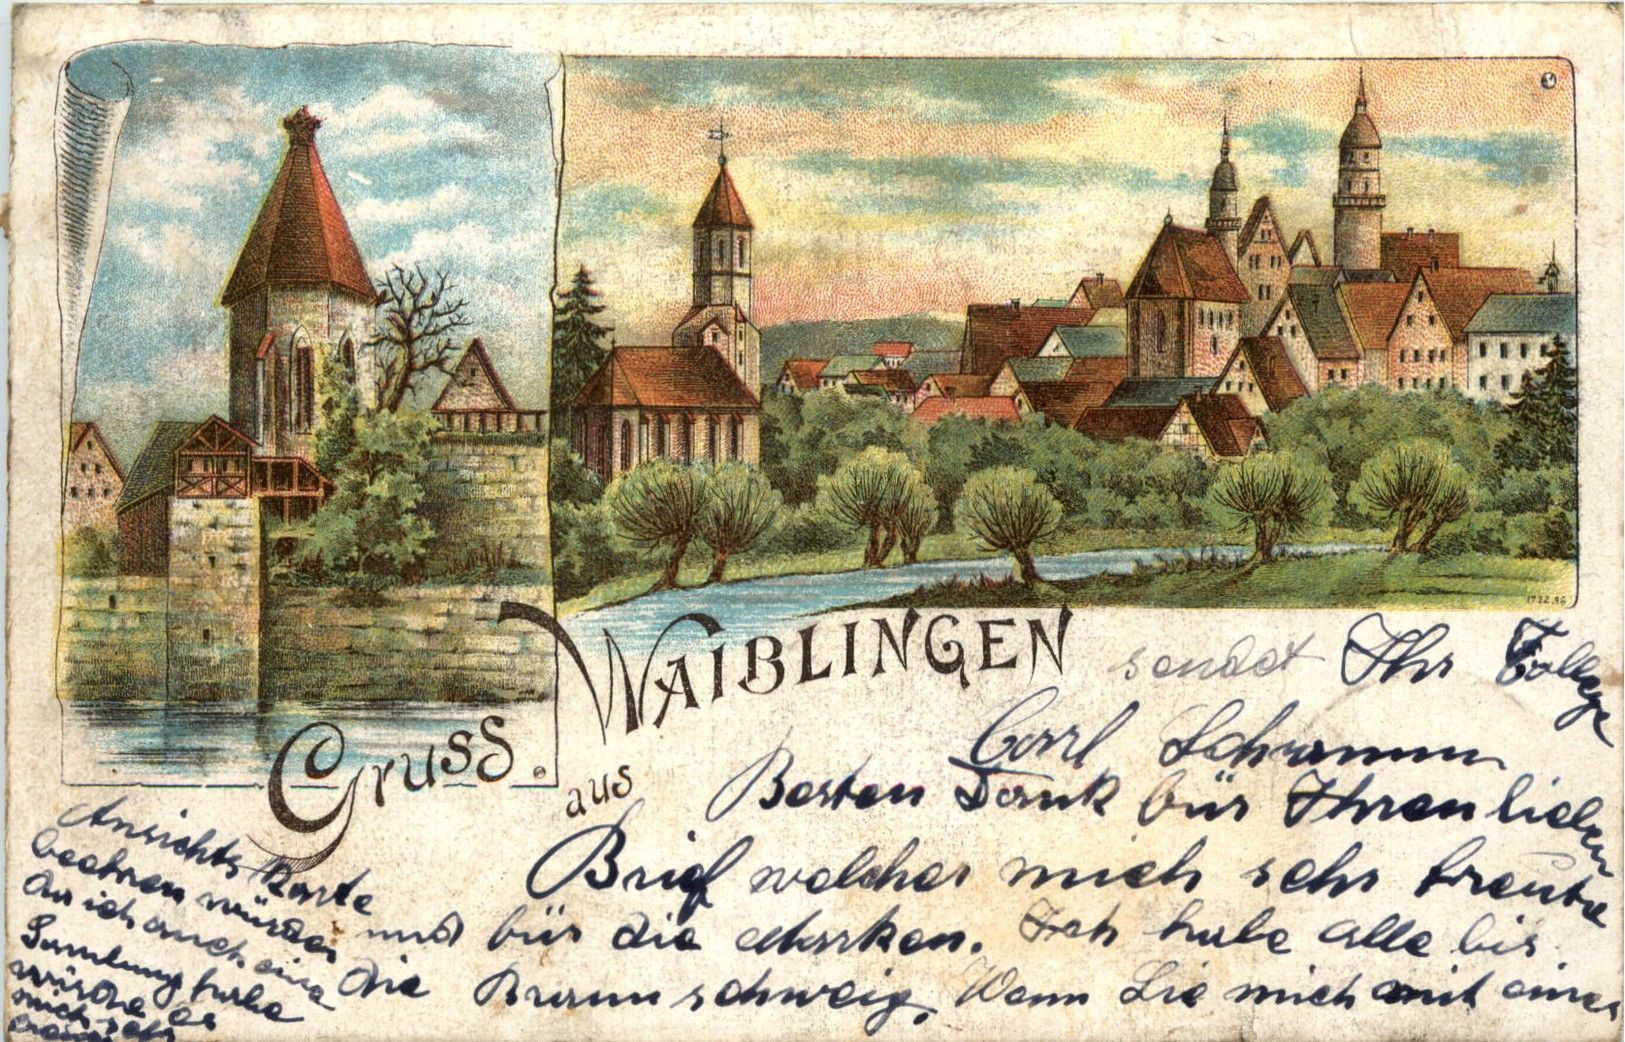 1722.96
Gruss
aus
WAIBLINGEN
sendet Ihr College
Carl Schramm
Besten Dank für Ihren lieben
Brief welcher mich sehr freute
und für die Marken. Ich habe alle bis
die Braunschweig. Wenn Sie mich mit einer
Ansichts Karte
beehren würden
da ich auch eine
Samlung habe
würde es
mich sehr